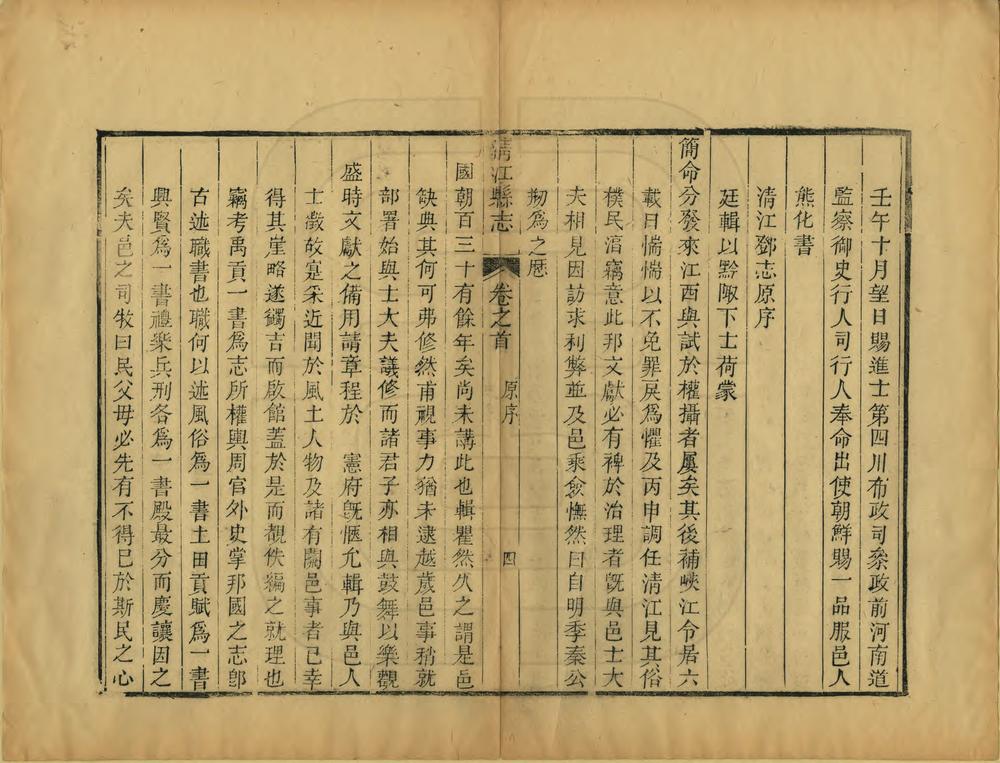 壬午十月望日賜進士第四川布政司叅政前河南道
監察御史行人司行人奉命出使朝鮮賜一品服邑人
熊化書
清江鄧志原序
廷輯以黔陬下士荷蒙
簡命分發來江西與試於權攝者屢矣其後補峽江令居六
載日惴惴以不免罪戾爲懼及丙申調任清江見其俗
樸民湻竊意此邦文獻必有裨於治理者旣與邑士大
夫相見因訪求利弊並及邑乘僉憮然曰自明季秦公
剏爲之歷
清江縣志
卷之首
原序
四
國朝百三十有餘年矣尚未講此也輯瞿然久之謂是邑
缺典其何可弗修然甫視事力猶未逮越歲邑事稍就
部署始與士大夫議修而諸君子亦相與鼓舞以樂觀
盛時文獻之備用請章程於 憲府旣愜允輯乃與邑人
士徵故寔采近聞於風土人物及諸有關邑事者已幸
得其崖略遂蠲吉而啟館蓋於是而覩佚編之就理也
竊考禹貢一書爲志所權輿周官外史掌邦國之志卽
古述職書也職何以述風俗爲一書土田貢賦爲一書
興賢爲一書禮樂兵刑各爲一書殿最分而慶讓因之
矣夫邑之司牧曰民父母必先有不得已於斯民之心